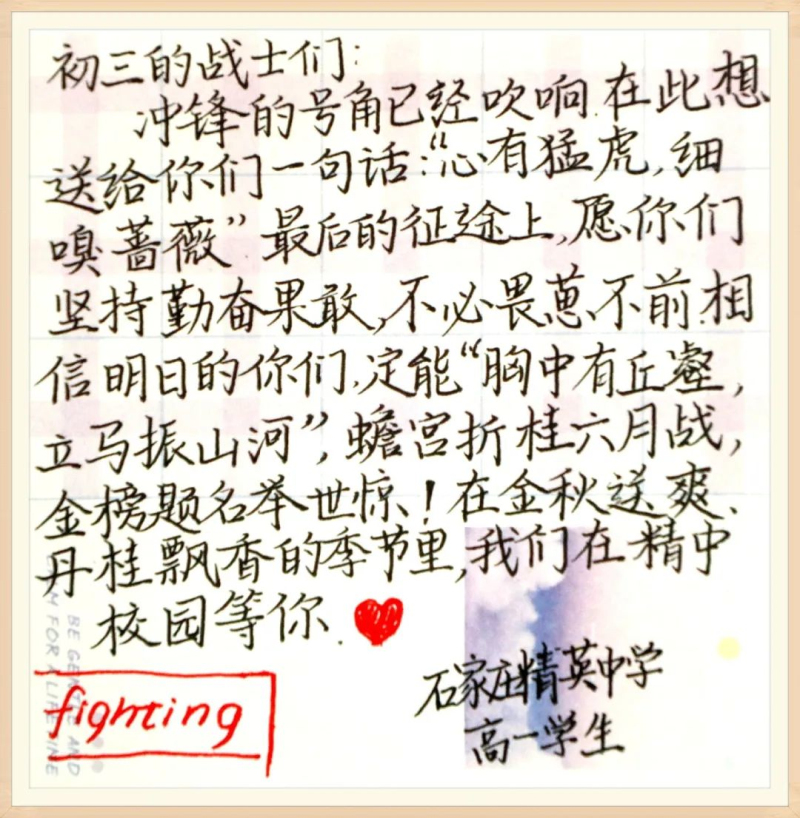 初三的战士们：
冲锋的号角已经吹响.在此想
送给你们一句话：“心有猛虎,细
嗅蔷薇”最后的征途上,愿你们
坚持勤奋果敢,不必畏葸不前.相
信明日的你们,定能“胸中有丘壑，
立马振山河”，蟾宫折桂六月战，
金榜题名举世惊！在金秋送爽、
丹桂飘香的季节里,我们在精中
校园等你.
石家庄精英中学
高一学生
fighting
BE GENTLE AND